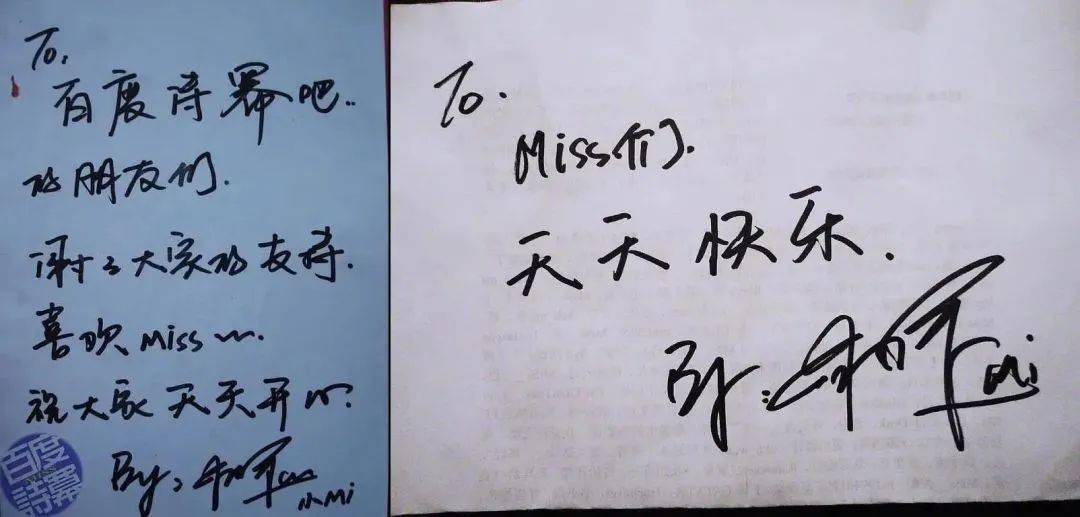 To.
百度诗幂吧..
的朋友们.
谢谢大家的支持.
喜欢Miss
祝大家天天开心.
By:
小Mi
百度
詩
To.
Miss们.
天天快乐.
By:
Mi